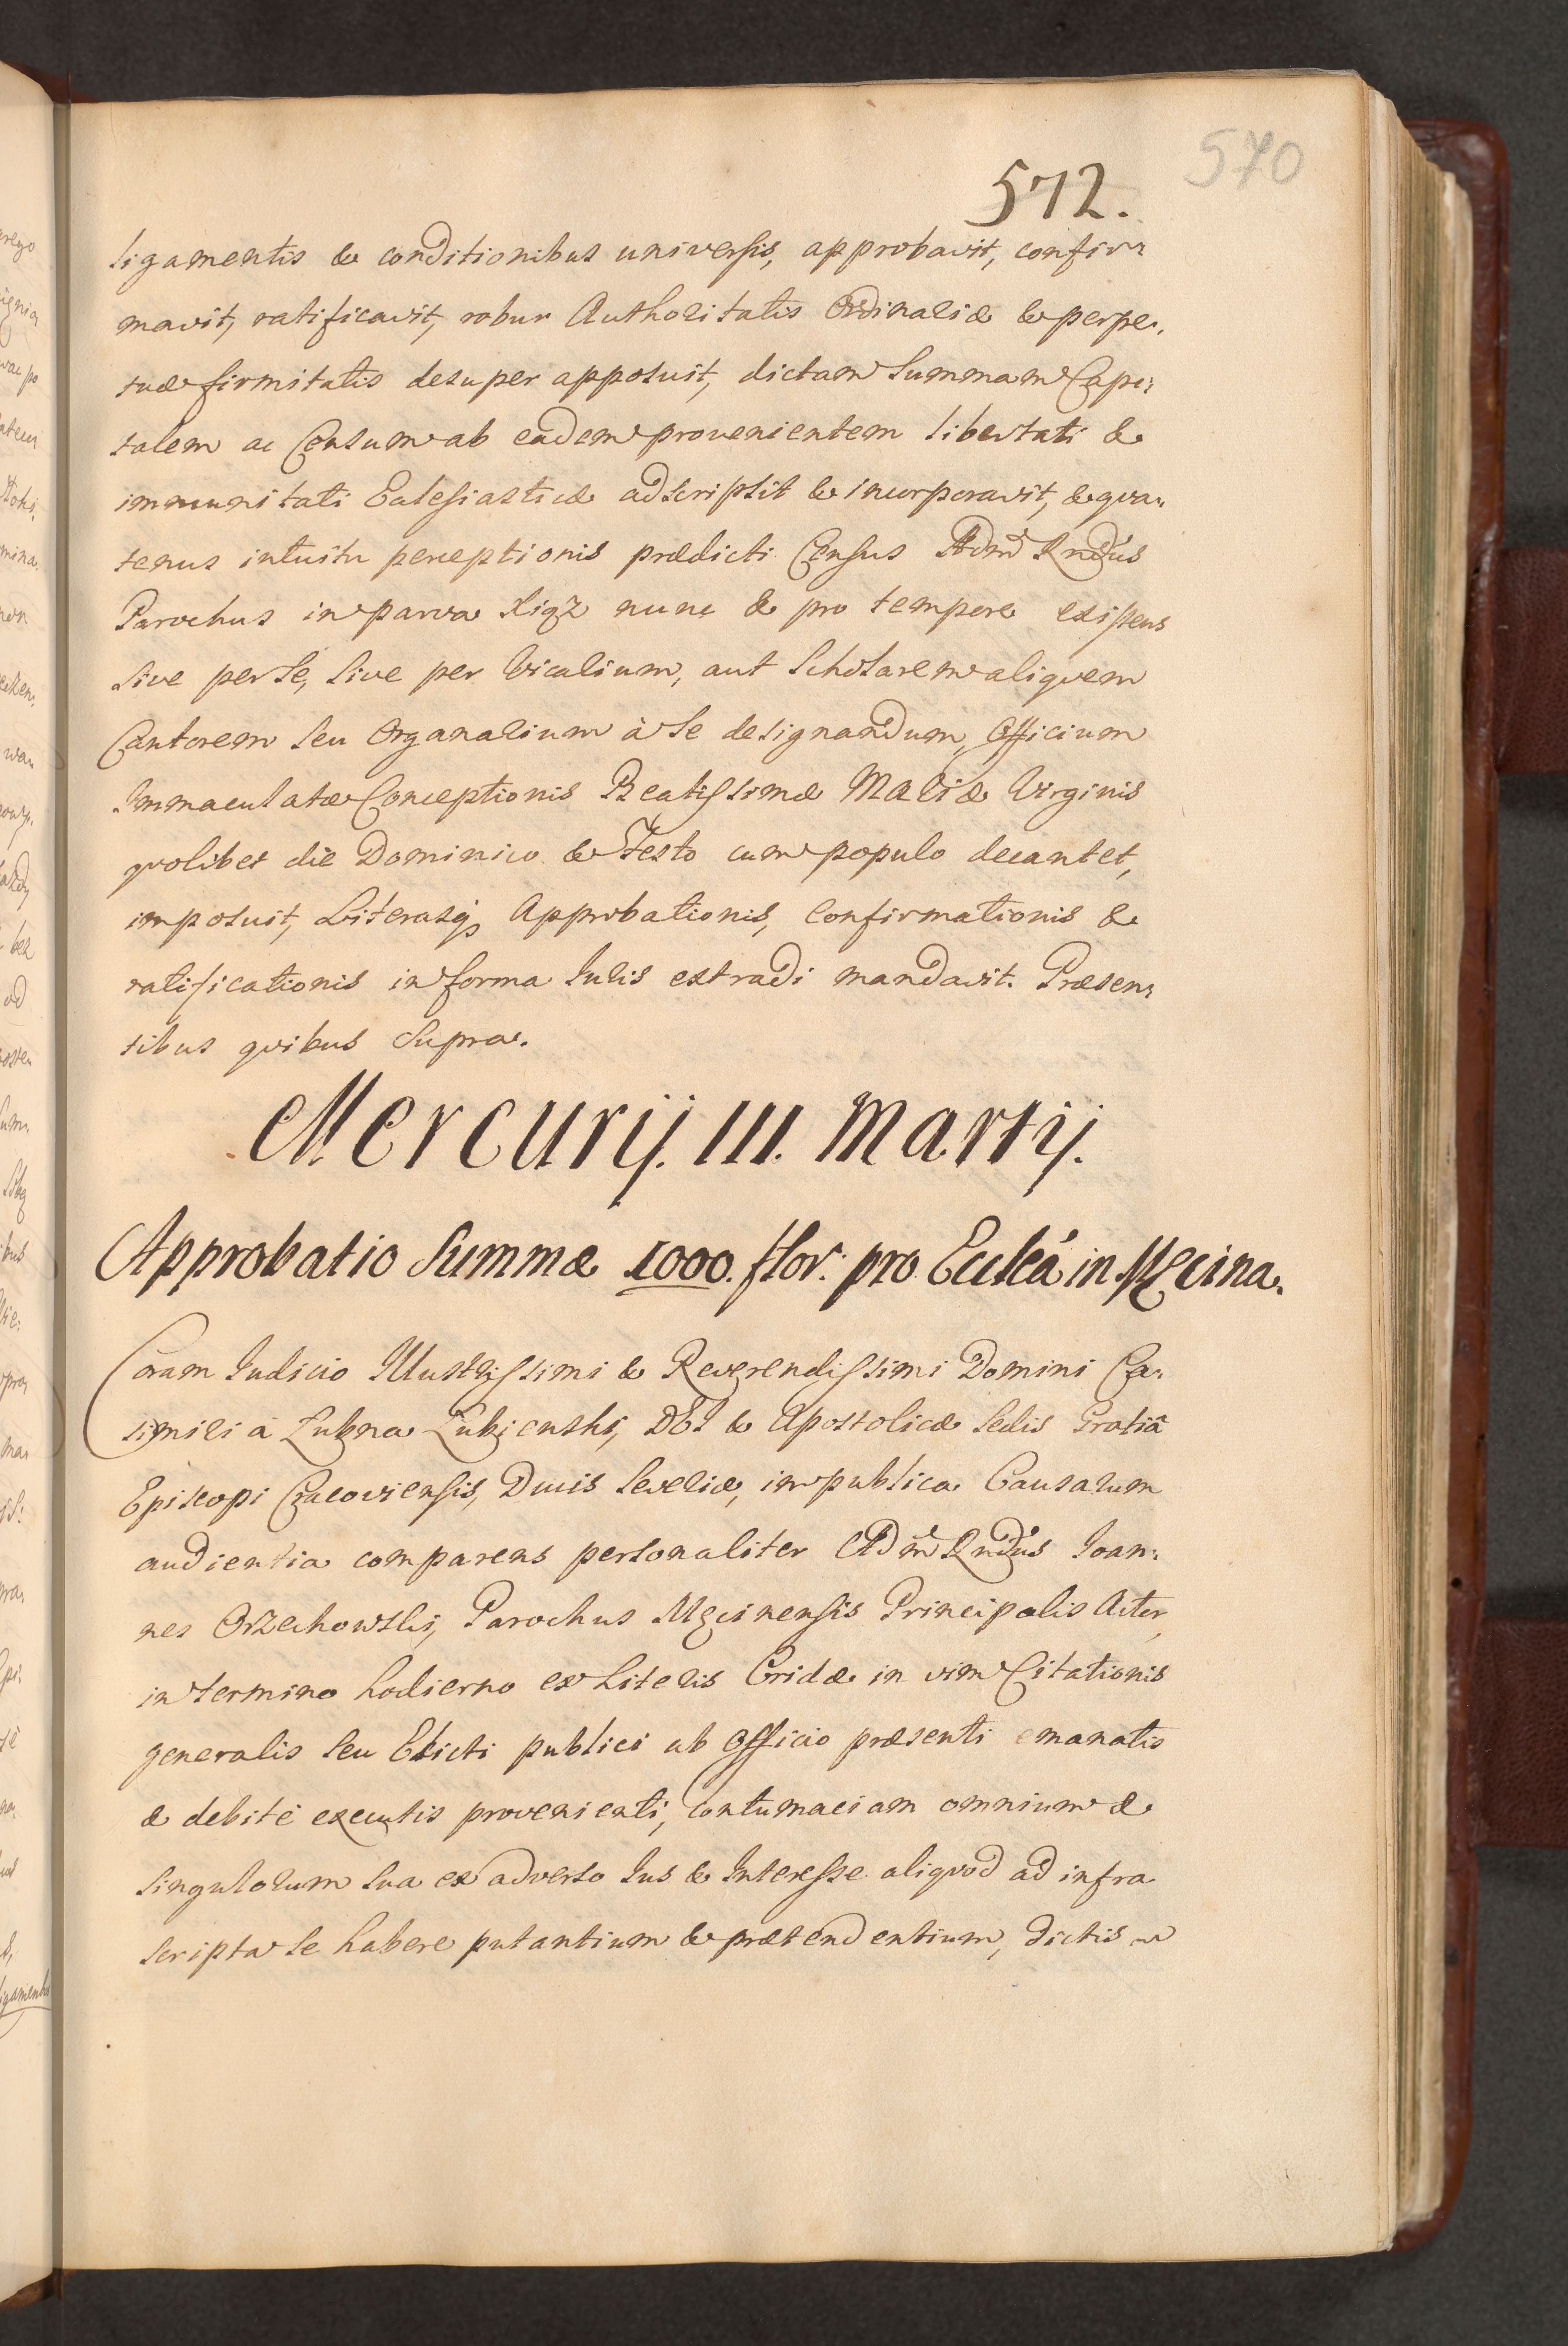 570
572.
ligamentis & conditionibus universis, approbavit, confir-
mavit, ratificavit, robur Authoritatis Ordinariæ & perpe-
tuæ firmitatis desuper apposuit, dictam Summam Capi-
talem ac Censum ab eadem provenientem libertati &
immunitati Ecclesiasticæ adscripsit & incorporavit, & qva-
tenus intuitu perceptionis prædicti Census Adm Rndus
Parochus in parva nunc & pro tempore existens
sive per se, sive per Vicarium, aut Scholarem aliqvem
Cantorem seu Organarium à se designandum, Officium
Immaculatæ Conceptionis Beatissimæ MARIÆ Virginis
qvolibet die Dominico & Festo cum populo decantet,
imposuit, Literasq Approbationis, Confirmationis &
ratificationis in forma Iuris extradi mandavit. Præsen-
tibus qvibus supra.
Mercurij. III. Martij.
Approbatio Summæ 1000. flor: pro Eccleâ in Męcina.
Coram Iudicio Illustrissimi & Reverendissimi Domini Ca-
simiri à Łubna Łubienski, DEI & Apostolicæ Sedis Gratiâ
Episcopi Cracoviensis, Ducis Severiæ, in publica Causarum
audientia comparens personaliter Adm Rndus Ioan-
nes Orzechowski, Parochus Męcinensis Principalis Actor,
in termino hodierno ex Literis Cridæ in vim Citationis
generalis seu Edicti publici ab Officio præsenti emanatis
& debitè executis provenienti, Contumaciam omnium &
singulorum sua ex adverso Ius & Interesse aliqvod ad infra
scripta se habere putantium & prætendentium, dictis